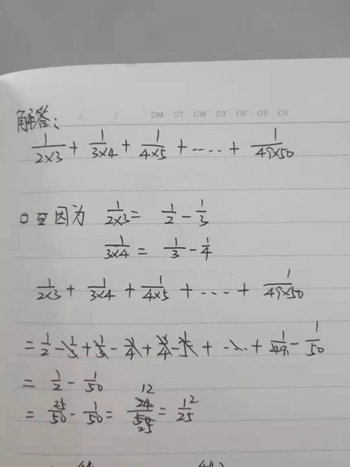 OM OT OW OT OF OS OS
解答:
1/2×3 + 1/3×4 + 1/4×5 + ---- + 1/49×50
因为 1/2×3 = 1/2 - 1/3
1/3×4 = 1/3 - 1/4
1/2×3 + 1/3×4 + 1/4×5 + --- + 1/49×50
= 1/2 - 1/3 + 1/3 - 1/4 + 1/4 - 1/5 + --- + 1/49 - 1/50
= 1/2 - 1/50
= 25/50 - 1/50 = 24/50 = 12/25
12
25